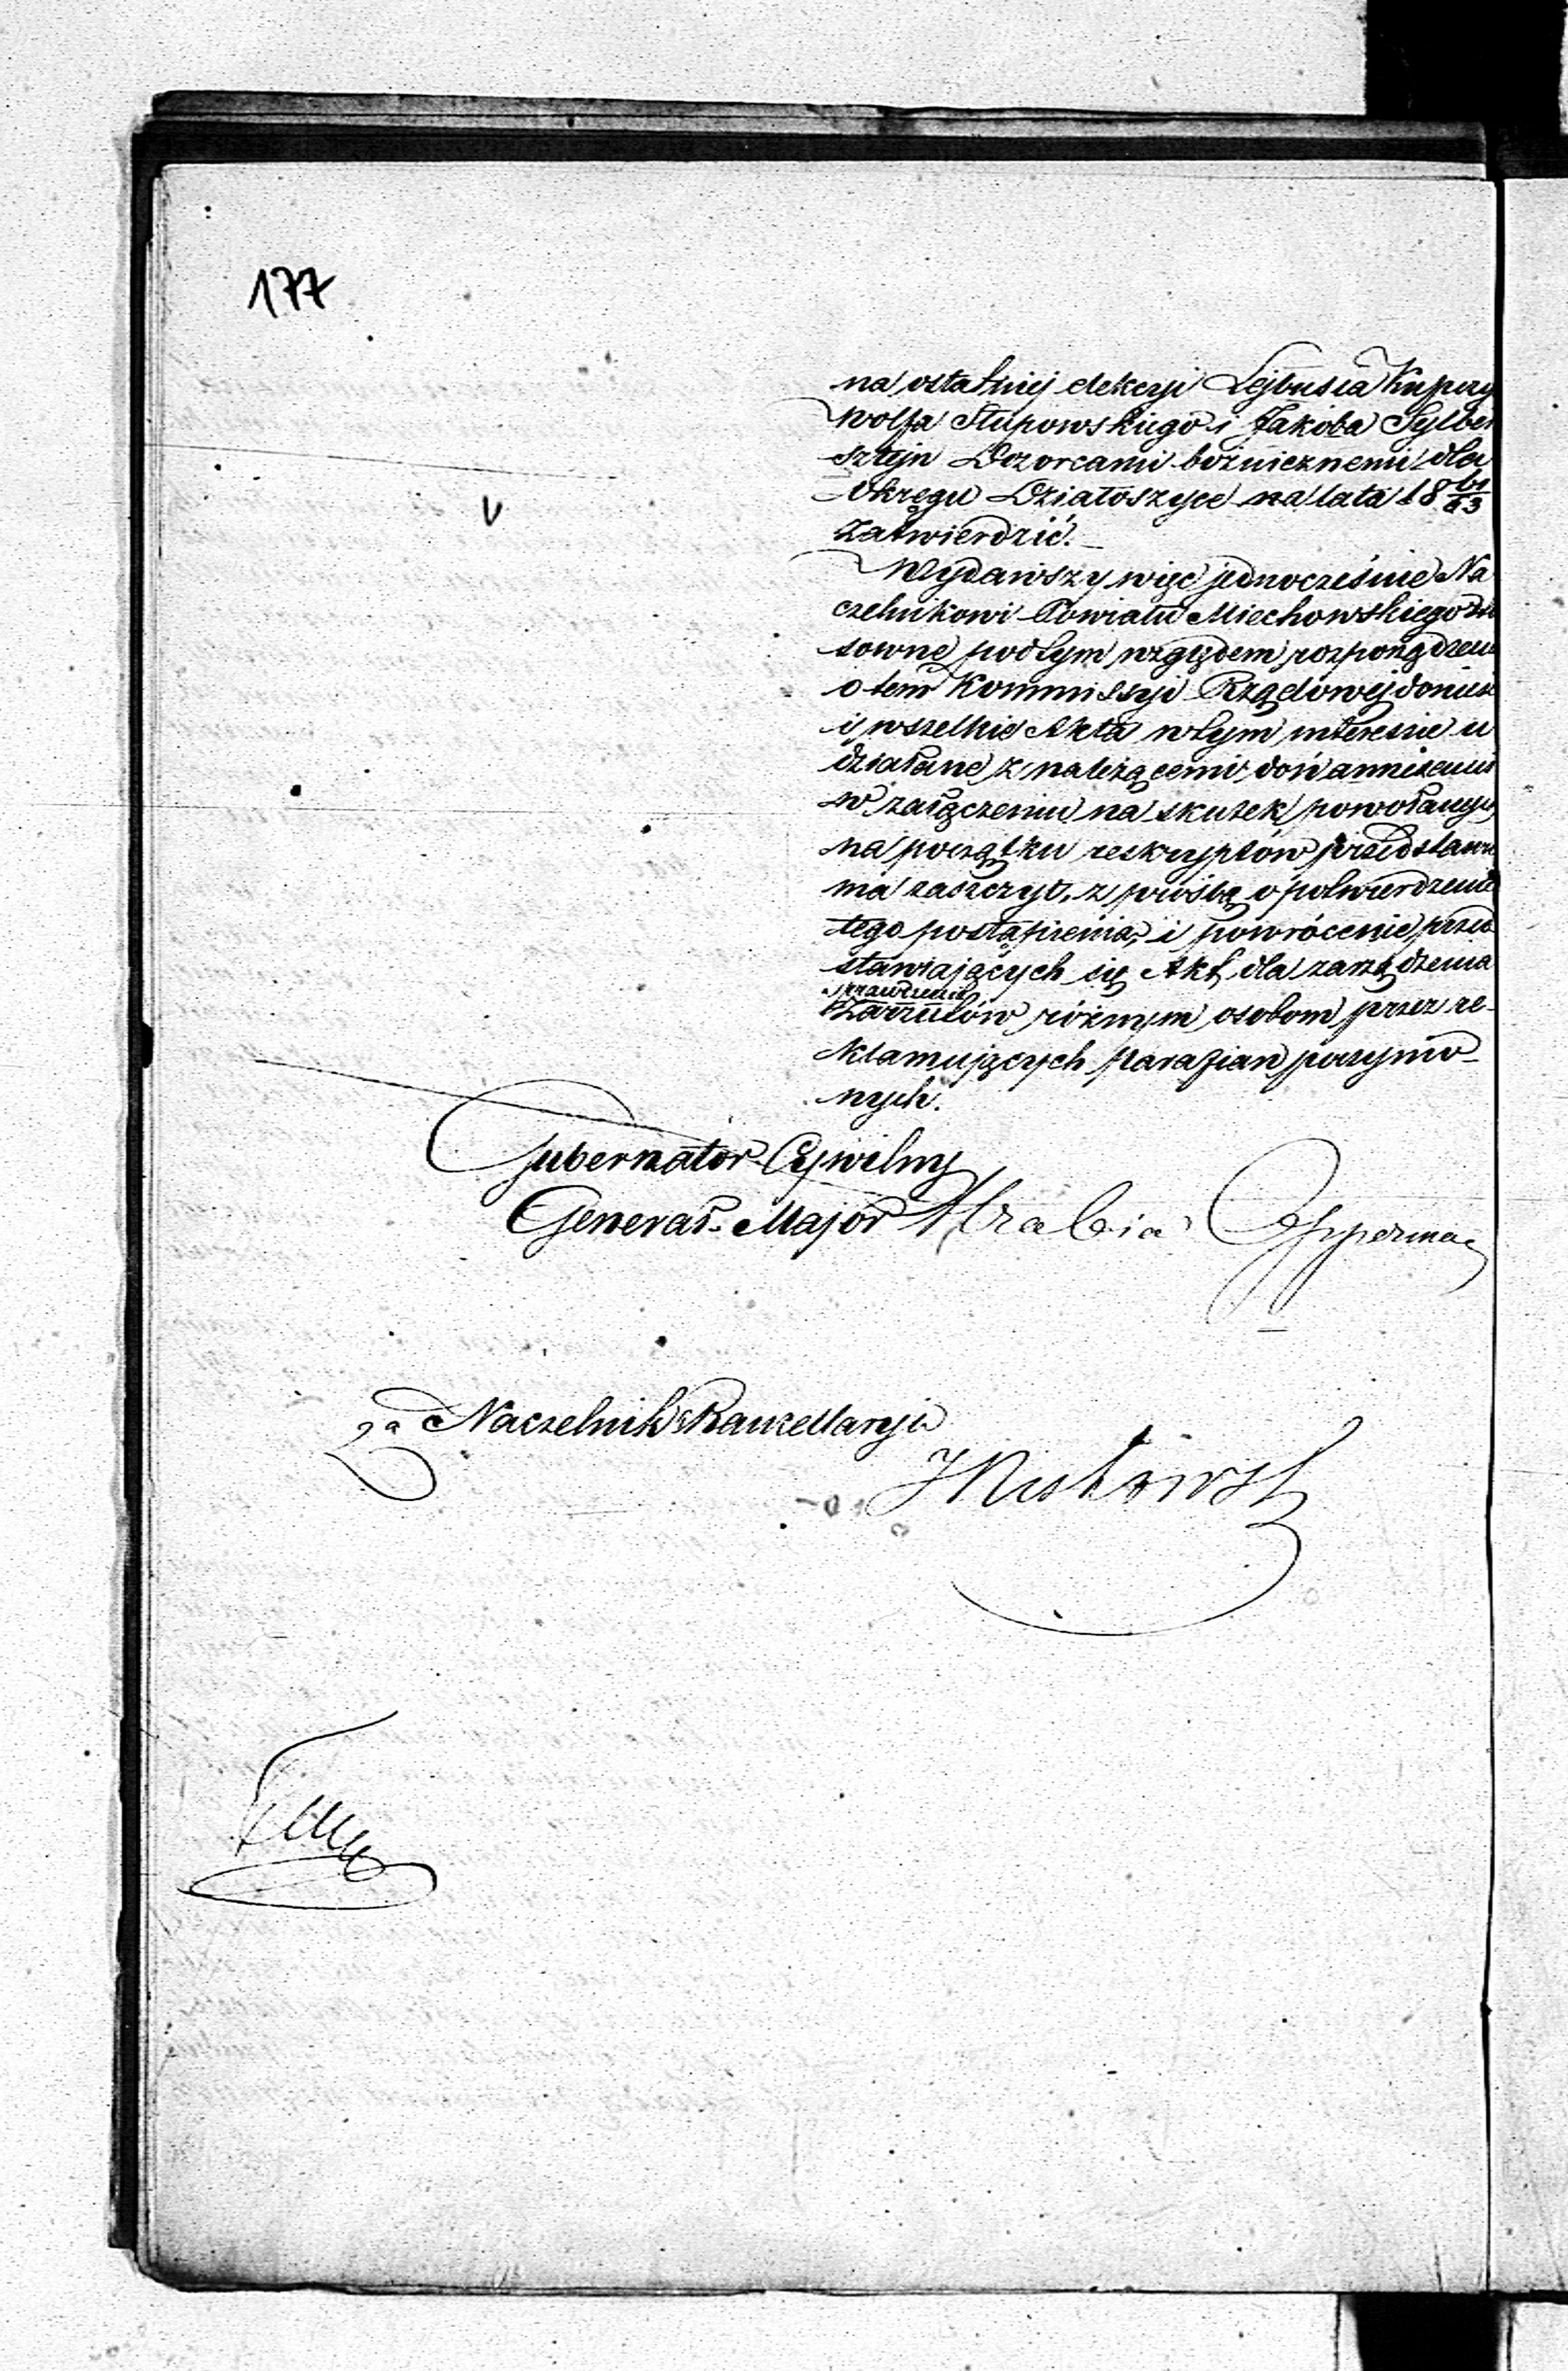 177
na ostatniej elekcyi Lejbusia Kupczy
Wolfa Stupowskiego i Jakóba Sylber
sztejn Dozorcami bóżnicznemi dla
Okręgu Działoszyce na lata 18 61/63
zatwierdzić.
Wydawszy więc jednocześnie Na
czelnikowi Powiatu Miechowskiego sto
sowne pod tym względem rozporządzeni
o tem Kommissyi Rządowej donieść
i wszelkie Akta w tym interesie u
działane z należącemi doń annexami
w załączeniu na skutek powołanych
na początku reskryptów przedstawić
ma zaszczyt, z prośbą o potwierdzenie
tego postąpienia, i powrócenie przed
stawiających się Akt, dla zarządzenia
sprawdzenia
zarzutów różnym osobom przez re-
klamujących parafian poczynio-
nych.
Gubernator Cywilny
Generał-Major Hrabia Opperman
za Naczelnik Kancellaryi